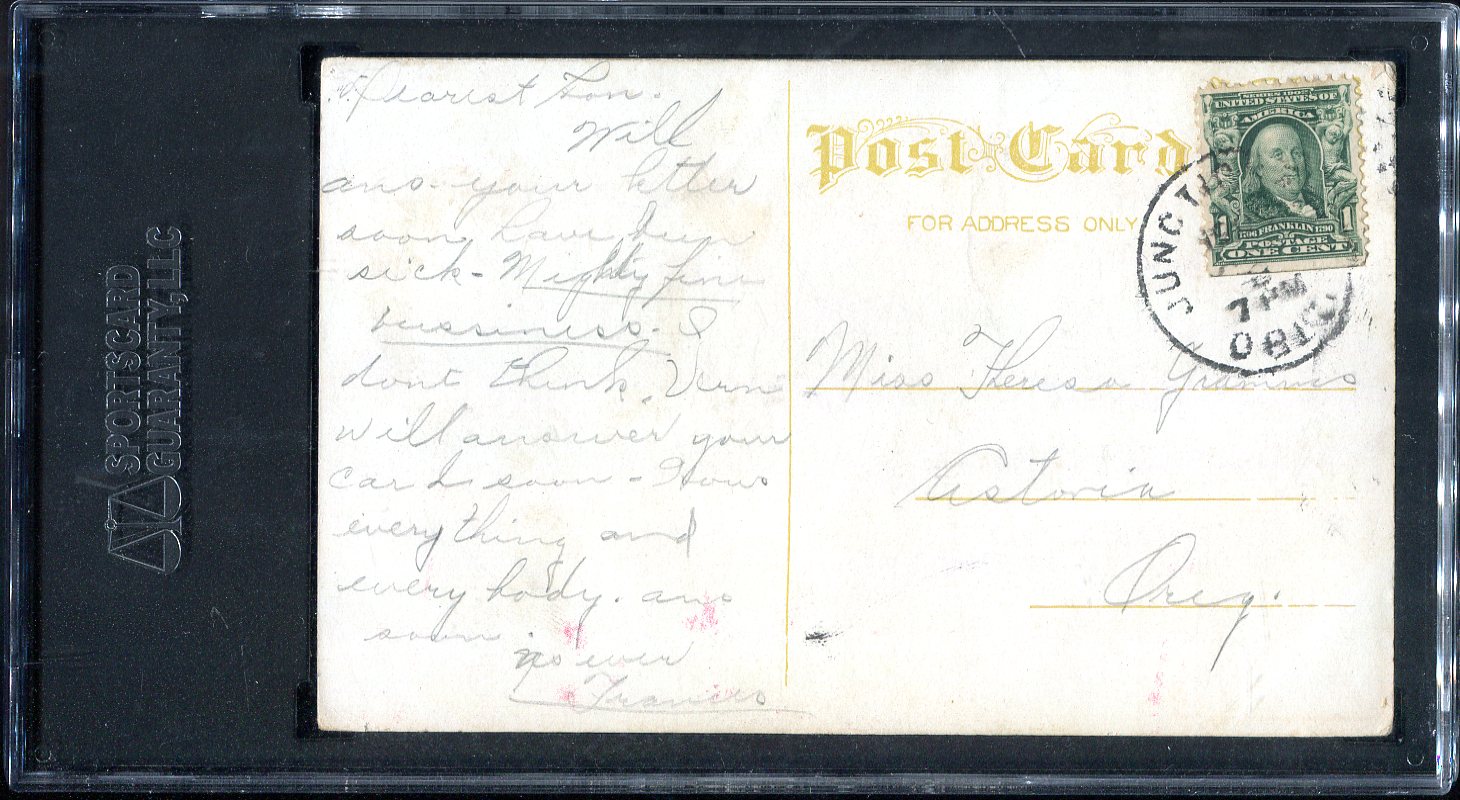 SPORTSCARD
GUARANTY, LLC
Dearest
Will
ans. your letter
soon, have been
sick - Mighty fine
bussiness. I
dont think Verne
will answer your
card soon - Hows
every thing and
every body. ans
soon.
as ever
Frances
Post Card
FOR ADDRESS ONLY
SERIES 1902
UNITED STATES OF
AMERICA
1706 FRANKLIN 1790
POSTAGE
1 1
ONE CENT
JUNCTI
7 PM
Miss Theresa Grammis
Astoria
Oreg.